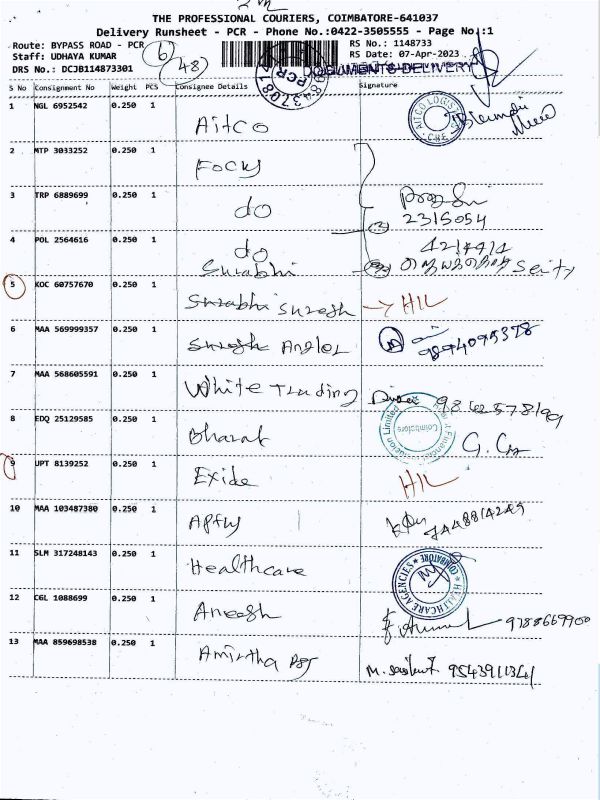 THE PROFESSIONAL COURIERS, COIMBATORE-641037
Delivery Runsheet - PCR - Phone No.:0422-3505555 - Page No.:1
Route: BYPASS ROAD - PCR RS No.: 1148733
Staff: UDHAYA KUMAR RS Date: 07-Apr-2023
DRS No.: DCJB114873301 (48) DOCUMENTS DELIVERY
S No Consignment No Weight PCS Consignee Details Signature
1 NGL 6952542 0.250 1 Aitco
2 MTP 3033252 0.250 1 Focus
3 TRP 6889699 0.250 1 do 2315054
4 POL 2564616 0.250 1 do
Surabhi
5 KOC 60757670 0.250 1 Surabhi Suresh → HIL
6 MAA 569999357 0.250 1 Suresh Angler 9894095378
7 MAA 568605591 0.250 1 White Trading
8 EDQ 25129585 0.250 1 Bharat
9 UPT 8139252 0.250 1 Exide HIL
10 MAA 103487380 0.250 1
11 SLM 317248143 0.250 1 Healthcare HEALTHCARE AGENCIES COIMBATORE
12 CGL 1088699 0.250 1 Aneesh 9788669900
13 MAA 859698538 0.250 1 Amirtha